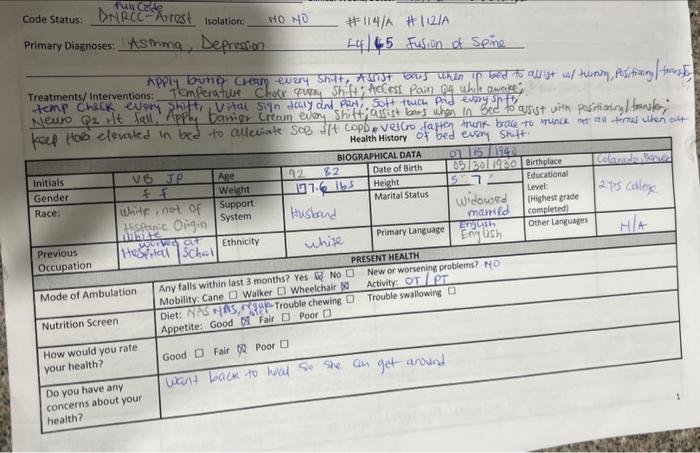 Full Code
Code Status: DNRCC-Arrest Isolation: NO NO #114/A #112/A
Primary Diagnoses: Asthma, Depression L4/L5 Fusion of Spine
Apply barrier cream every shift, Assist bars when in bed to assist w/ turning, Positioning/transfer
Treatments/Interventions: Temperature Check every shift; Access Pain Q4 while awake;
temp check every shift, Vital sign daily and PRN, Soft touch pad every shift,
Neuro Q2 r/t fall, Apply barrier cream every shift, assist bars when in bed to assist with positioning/transfer,
keep HOB elevated in bed to alleviate SOB d/t COPD, velcro fasten trunk brace to trunk at all times when out
of bed every shift.
Health History
BIOGRAPHICAL DATA
Initials VB JP Age 92 82 Date of Birth 07/15/1940 05/30/1930 Birthplace Colorado, Denver
Gender F F Weight 177.6 lbs Height 5' 7" Educational Level: (Highest grade completed) 2 yrs College
Race: White, not of Hispanic Origin White Support System Husband Marital Status Widowed married
Ethnicity white Primary Language English English Other Languages N/A
Previous Occupation worked at Hospital School
PRESENT HEALTH
Mode of Ambulation Any falls within last 3 months? Yes No New or worsening problems? NO
Mobility: Cane Walker Wheelchair Activity: OT/PT
Nutrition Screen Diet: NAS NAS, regular diet Trouble chewing Trouble swallowing
Appetite: Good Fair Poor
How would you rate your health? Good Fair Poor
Do you have any concerns about your health? Want back to heal so she can get around
1